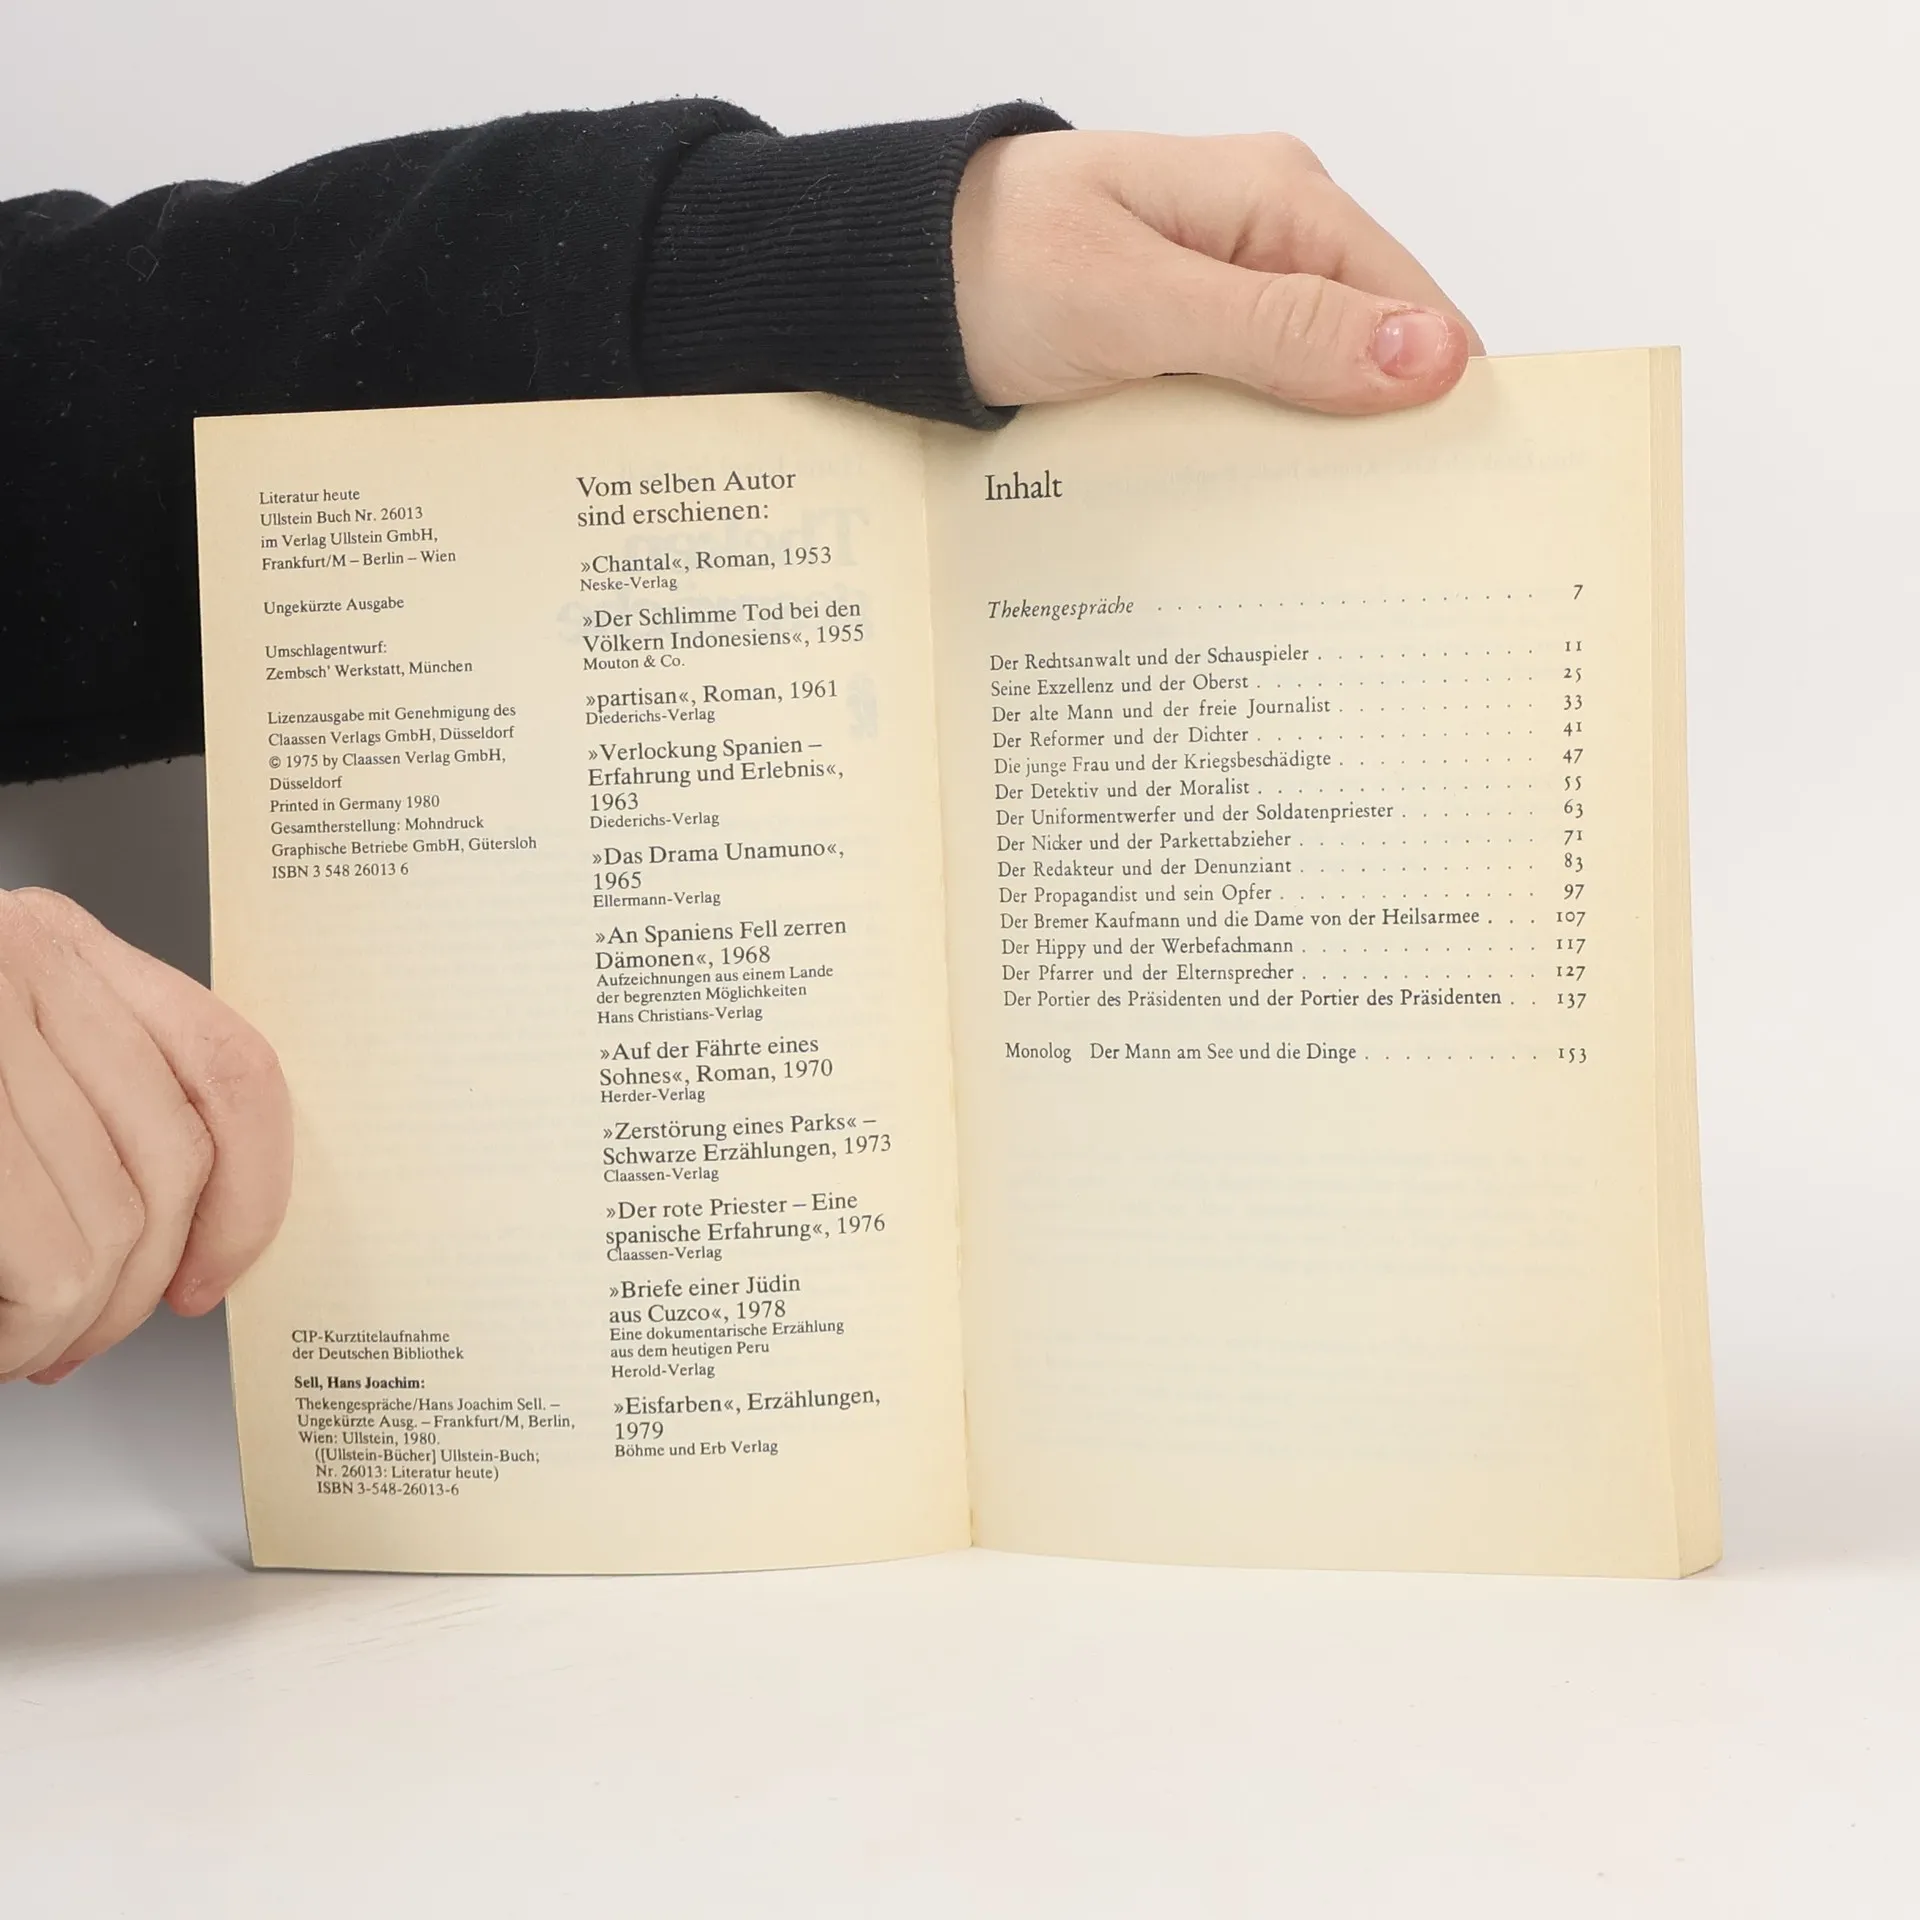 Literatur heute
Ullstein Buch Nr. 26013
im Verlag Ullstein GmbH,
Frankfurt/M – Berlin – Wien
Ungekürzte Ausgabe
Umschlagentwurf:
Zembsch' Werkstatt, München
Lizenzausgabe mit Genehmigung des
Claassen Verlags GmbH, Düsseldorf
© 1975 by Claassen Verlag GmbH,
Düsseldorf
Printed in Germany 1980
Gesamtherstellung: Mohndruck
Graphische Betriebe GmbH, Gütersloh
ISBN 3 548 26013 6
CIP-Kurztitelaufnahme
der Deutschen Bibliothek
Sell, Hans Joachim:
Thekengespräche/Hans Joachim Sell. –
Ungekürzte Ausg. – Frankfurt/M, Berlin,
Wien: Ullstein, 1980.
([Ullstein-Bücher] Ullstein-Buch;
Nr. 26013: Literatur heute)
ISBN 3-548-26013-6
Vom selben Autor
sind erschienen:
»Chantal«, Roman, 1953
Neske-Verlag
»Der Schlimme Tod bei den
Völkern Indonesiens«, 1955
Mouton & Co.
»partisan«, Roman, 1961
Diederichs-Verlag
»Verlockung Spanien –
Erfahrung und Erlebnis«,
1963
Diederichs-Verlag
»Das Drama Unamuno«,
1965
Ellermann-Verlag
»An Spaniens Fell zerren
Dämonen«, 1968
Aufzeichnungen aus einem Lande
der begrenzten Möglichkeiten
Hans Christians-Verlag
»Auf der Fährte eines
Sohnes«, Roman, 1970
Herder-Verlag
»Zerstörung eines Parks« –
Schwarze Erzählungen, 1973
Claassen-Verlag
»Der rote Priester – Eine
spanische Erfahrung«, 1976
Claassen-Verlag
»Briefe einer Jüdin
aus Cuzco«, 1978
Eine dokumentarische Erzählung
aus dem heutigen Peru
Herold-Verlag
»Eisfarben«, Erzählungen,
1979
Böhme und Erb Verlag
Inhalt
Thekengespräche . . . . . . . . . . . . . . . . . . . 7
Der Rechtsanwalt und der Schauspieler . . . . . . . . . . . 11
Seine Exzellenz und der Oberst . . . . . . . . . . . . . . 25
Der alte Mann und der freie Journalist . . . . . . . . . . 33
Der Reformer und der Dichter . . . . . . . . . . . . . . 41
Die junge Frau und der Kriegsbeschädigte . . . . . . . . . . 47
Der Detektiv und der Moralist . . . . . . . . . . . . . . 55
Der Uniformentwerfer und der Soldatenpriester . . . . . . . 63
Der Nicker und der Parkettabzieher . . . . . . . . . . . . 71
Der Redakteur und der Denunziant . . . . . . . . . . . . 83
Der Propagandist und sein Opfer . . . . . . . . . . . . . 97
Der Bremer Kaufmann und die Dame von der Heilsarmee . . . 107
Der Hippy und der Werbefachmann . . . . . . . . . . . . 117
Der Pfarrer und der Elternsprecher . . . . . . . . . . . . 127
Der Portier des Präsidenten und der Portier des Präsidenten . . 137
Monolog Der Mann am See und die Dinge . . . . . . . . . 153